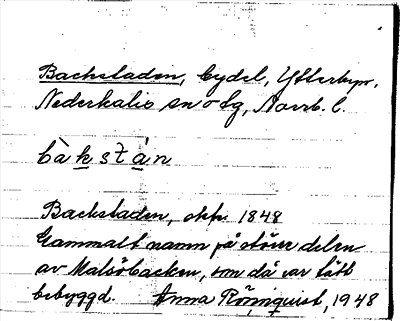 Backstaden, bydel, Ytterbyn,
Nederkalix sn o tg, Norrb. l.
bàkstán
Backstaden, okfr. 1848
Gammalt namn på större delen
av Malsöbacken, som då var tätt
bebyggd. Anna Römquist, 1948